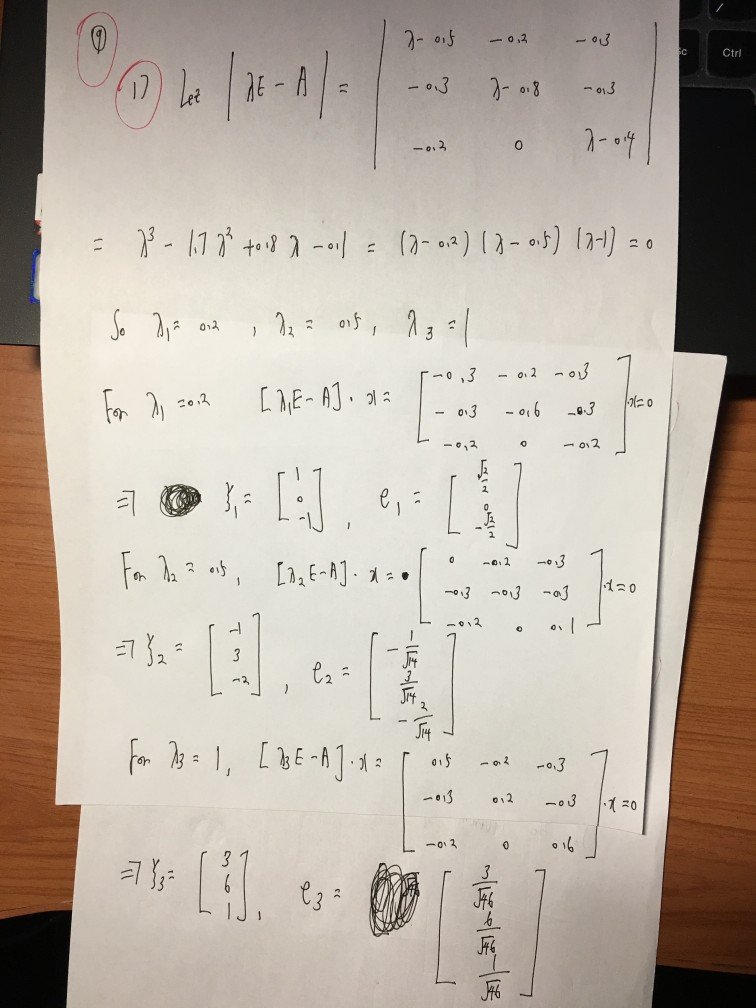 ⑨
1) Let |λE - A| = | λ-0.5 -0.2 -0.3 |
| -0.3 λ-0.8 -0.3 |
| -0.2 0 λ-0.4 |
= λ³ - 1.7λ² + 0.8λ - 0.1 = (λ-0.2)(λ-0.5)(λ-1) = 0
So λ₁ = 0.2 , λ₂ = 0.5, λ₃ = 1
For λ₁ = 0.2 [λ₁E-A]·x = [ -0.3 -0.2 -0.3 ; -0.3 -0.6 -0.3 ; -0.2 0 -0.2 ]·x=0
⇒ ξ₁ = [ 1 ; 0 ; -1 ], e₁ = [ √2/2 ; 0 ; -√2/2 ]
For λ₂ = 0.5, [λ₂E-A]·x = [ 0 -0.2 -0.3 ; -0.3 -0.3 -0.3 ; -0.2 0 0.1 ]·x=0
⇒ ξ₂ = [ -1 ; 3 ; -2 ], e₂ = [ -1/√14 ; 3/√14 ; -2/√14 ]
For λ₃ = 1, [λ₃E-A]·x = [ 0.5 -0.2 -0.3 ; -0.3 0.2 -0.3 ; -0.2 0 0.6 ]·x=0
⇒ ξ₃ = [ 3 ; 6 ; 1 ], e₃ = [ 3/√46 ; 6/√46 ; 1/√46 ]
Ctrl